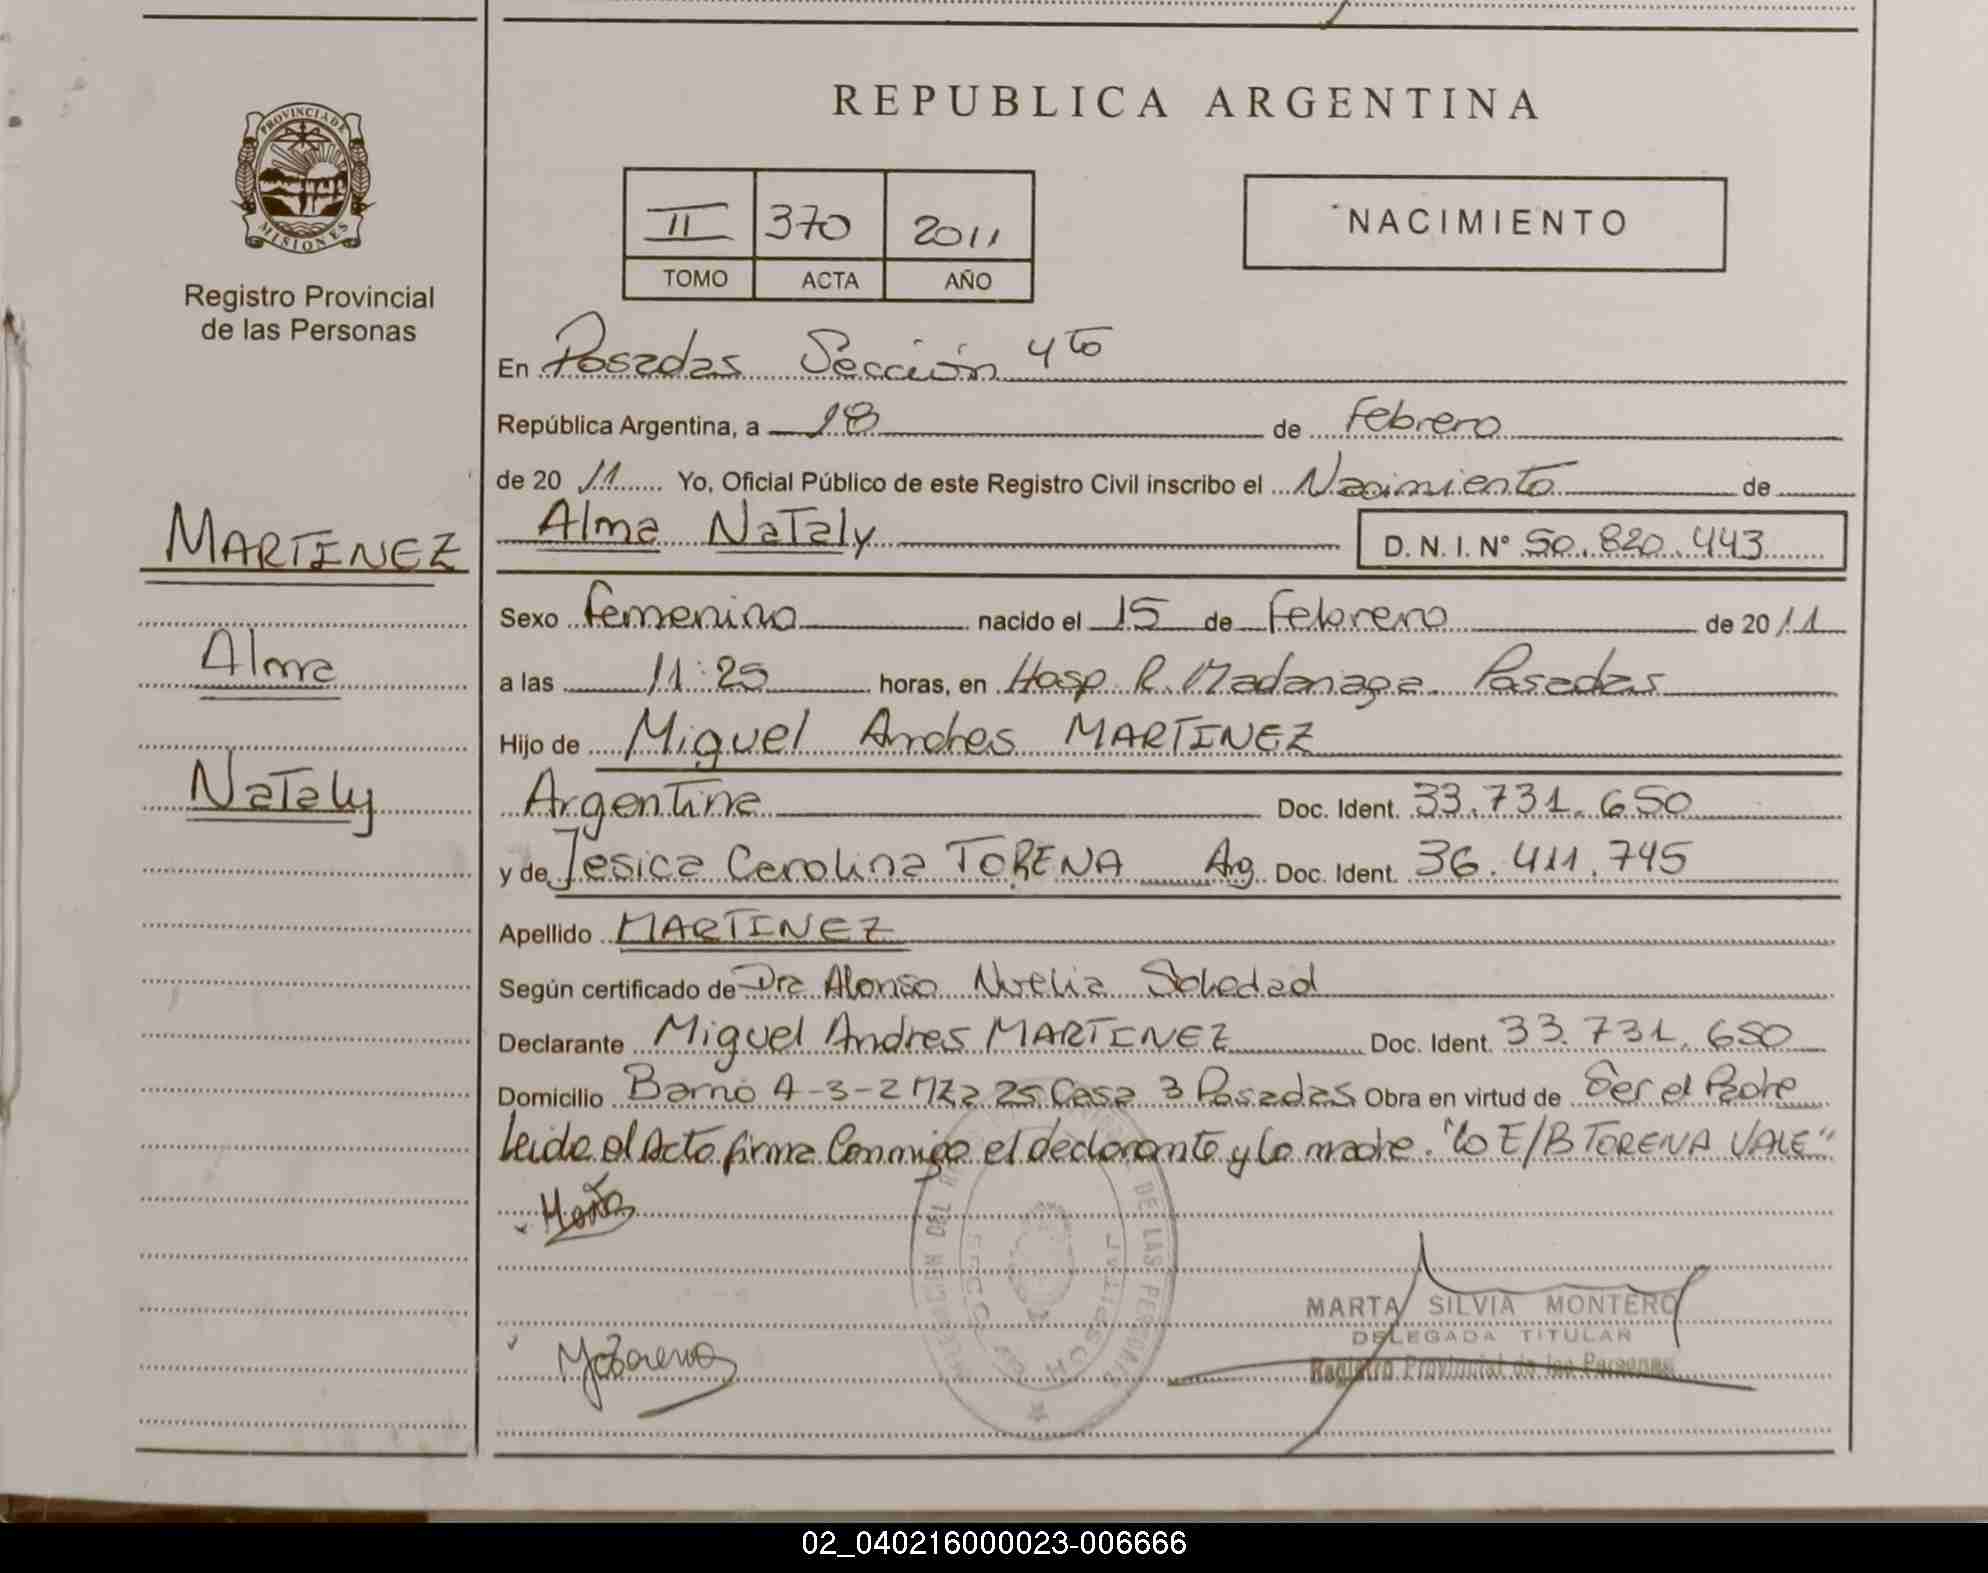 REPUBLICA ARGENTINA
PROVINCIA DE MISIONES
Registro Provincial
de las Personas
II 370 2011
TOMO ACTA AÑO
NACIMIENTO
En Posadas Sección 4to
República Argentina, a 18 de Febrero
de 20 11 Yo, Oficial Público de este Registro Civil inscribo el Nacimiento de
Alma Nataly D. N. I. Nº 50.820.443
MARTINEZ
Alma
Nataly
Sexo Femenino nacido el 15 de Febrero de 20 11
a las 11:25 horas, en Hosp R. Madariaga Posadas
Hijo de Miguel Andres MARTINEZ
Argentina Doc. Ident. 33.731.650
y de Jesica Carolina TORENA Arg. Doc. Ident. 36.411.745
Apellido MARTINEZ
Según certificado de Dra Alonso Soledad
Declarante Miguel Andres MARTINEZ Doc. Ident. 33.731.650
Domicilio Barrio A-3-2 Mza 25 Casa 3 Posadas Obra en virtud de Ser el Padre
Leida el Acta firma Conmigo el declarante y la madre. "lo E/B TORENA VALE"
DE LAS PERSONAS
HOSPITAL
MARTA SILVIA MONTERO
DELEGADA TITULAR
Registro Provincial de las Personas
02_040216000023-006666